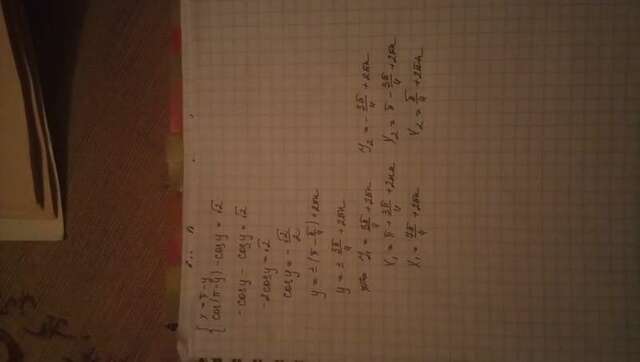 { x = π - y
cos(π-y) - cosy = √2
- cosy - cosy = √2
- 2cosy = √2
cosy = - √2/2
y = ± (π - π/4) + 2πn
y = ± 3π/4 + 2πn
y₁ = 3π/4 + 2πn y₂ = - 3π/4 + 2πn
x₁ = π + 3π/4 + 2πn x₂ = π - 3π/4 + 2πn
x₁ = 7π/4 + 2πn x₂ = π/4 + 2πn